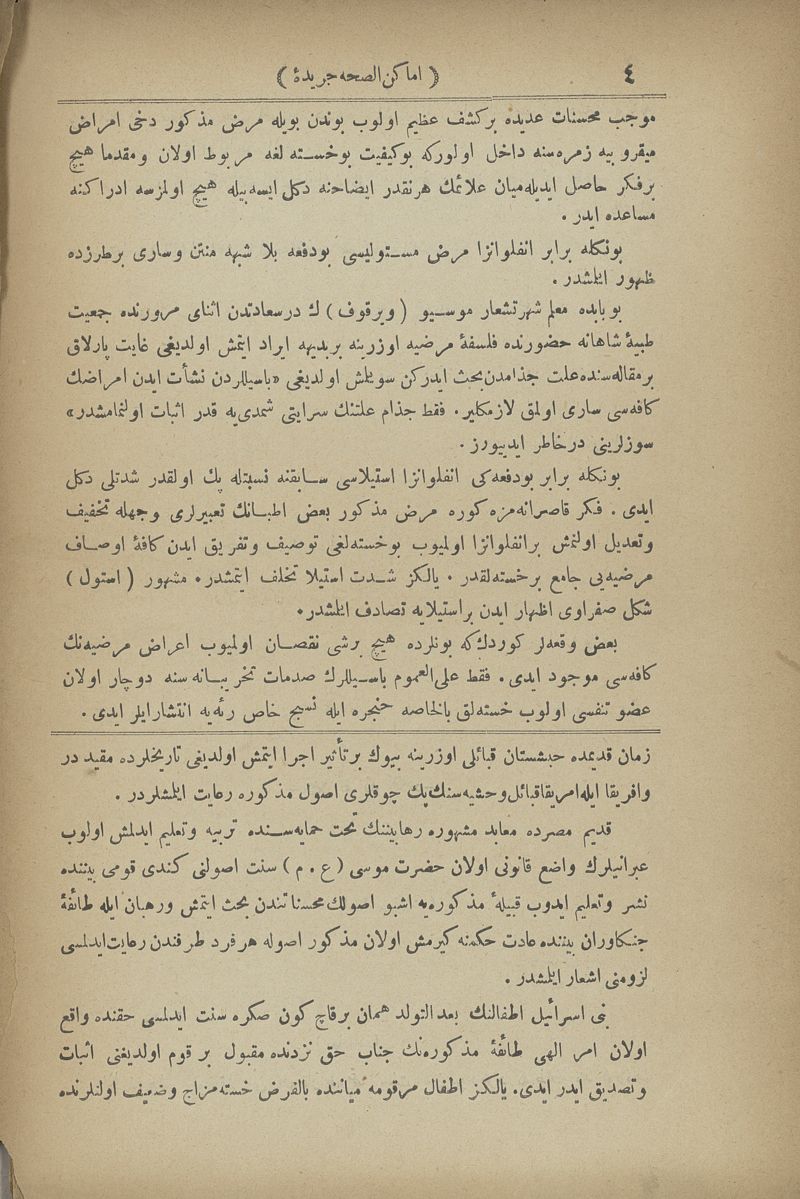 ٤
( اماكن الصحه جريدۀ )
موجب محسنات عديده بركشف عظيم اولوب بوندن بويله مرض مذكور دخى امراض
ميقروبيه زمره‌سنه داخل اولوركه بوكيفيت بوخسته‌لغه مربوط اولان ومقدما هيچ
برفكر حاصل ايديله‌ميان علائمك هرنقدر ايضاحنه دكل ايسه‌بيله هيچ اولمزسه ادراكنه
مساعده ايدر .
بونكله برابر انفلوانزا مرض مستوليسى بودفعه بلا شبهه منتن وسارى برطرزده
ظهور ايلمشدر .
بوبابده معلم شهرتشعار موسيو ( ويرقوف ) ك درسعادتدن اثناى مرورنده جمعيت
طبيۀ شاهانه حضورنده فلسفۀ مرضيه اوزرينه بربديهه ايراد ايتمش اولديغى غايت پارلاق
برمقاله‌سنده علت جذامدن بحث ايدركن سويلمش اولديغى «باسيللردن نشأت ايدن امراضك
كافه‌سى سارى اولمق لازمكلير . فقط جذام علتنك سرايتى شمدى‌يه قدر اثبات اولنمامشدر»
سوزلرينى درخاطر ايدييورز .
بونكله برابر بودفعه‌كى انفلوانزا استيلاسى سابقنه نسبتله پك اولقدر شدتلى دكل
ايدى . فكر قاصرانه‌مزه كوره مرض مذكور بعض اطبانك تعبيرلرى وجهله تخفيف
وتعديل اولنمش برانفلوانزا اولميوب بوخسته‌لغى توصيف وتفريق ايدن كافۀ اوصاف
مرضيه‌يى جامع برخسته‌لقدر . يالكز شدت استيلا تخلف ايتمشدر . مشهور ( استول )
شكل صفراوى اظهار ايدن براستيلايه تصادف ايلمشدر .
بعض وقعه‌لر كوردك‌كه بونلرده هيچ برشى نقصان اولميوب اعراض مرضيه‌نك
كافه‌سى موجود ايدى . فقط على العموم باسيللرك صدمات تخريبانه سنه دوچار اولان
عضو تنفسى اولوب خسته‌لق بالخاصه حنجره ايله نسج خاص رئه‌يه انتشار ايلر ايدى .
زمان قديمده حبشستان قبائلى اوزرينه بيوك برتأثير اجرا ايتمش اولديغى تاريخلرده مقيد در
وافريقا ايله امريقا قبائل وحشيه‌سنك پك چوقلرى اصول مذكوره رعايت ايلمشلردر .
قديم مصرده معابد مشهوره رهابيننك تحت حمايه‌سنده تربيه وتعليم ايدلمش اولوب
عبرانيلرك واضع قانونى اولان حضرت موسى ( ع . م ) سنت اصولنى كندى قومى بيننده
نشر وتعليم ايدوب قبيلۀ مذكوره‌يه اشبو اصولك محسناتندن بحث ايتمش ورهبان ايله طائفۀ
جنكاوران بيننده عادت حكمنه كيرمش اولان مذكور اصوله هر فرد طرفندن رعايت ايدلمسى
لزومنى اشعار ايلمشدر .
بنى اسرائيل اطفالنك بعد التولد همان برقاچ كون صكره سنت ايدلمسى حقنده واقع
اولان امر الهى طائفۀ مذكوره‌نك جناب حق نزدنده مقبول بر قوم اولديغنى اثبات
وتصديق ايدر ايدى . يالكز اطفال مرقومه مياننده بالفرض خسته‌مزاج وضعيف اولنلرنده